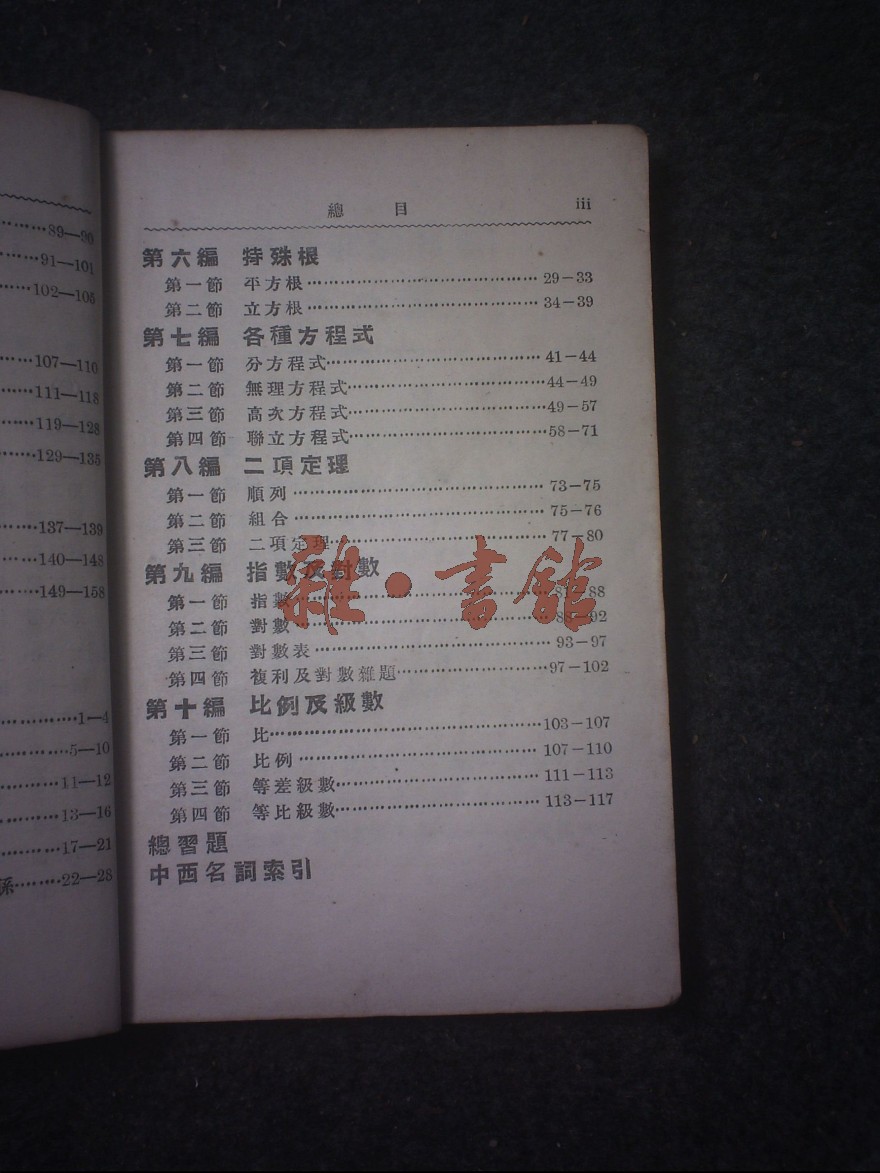 89—90
91—101
102—106
107—110
111—118
119—128
129—135
137—139
140—148
149—158
1—4
5—10
11—12
13—16
17—21
係………22—28
總目 iii
第六編 特殊根
第一節 平方根………29－33
第二節 立方根………34－39
第七編 各種方程式
第一節 分方程式………41－44
第二節 無理方程式………44－49
第三節 高次方程式………49－57
第四節 聯立方程式………58－71
第八編 二項定理
第一節 順列………73－75
第二節 組合………75－76
第三節 二項定理………77－80
第九編 指數及對數
第一節 指數………81－88
第二節 對數………88－92
第三節 對數表………93－97
第四節 複利及對數雜題………97－102
第十編 比例及級數
第一節 比………103－107
第二節 比例………107－110
第三節 等差級數………111－113
第四節 等比級數………113－117
總習題
中西名詞索引
雜·書館